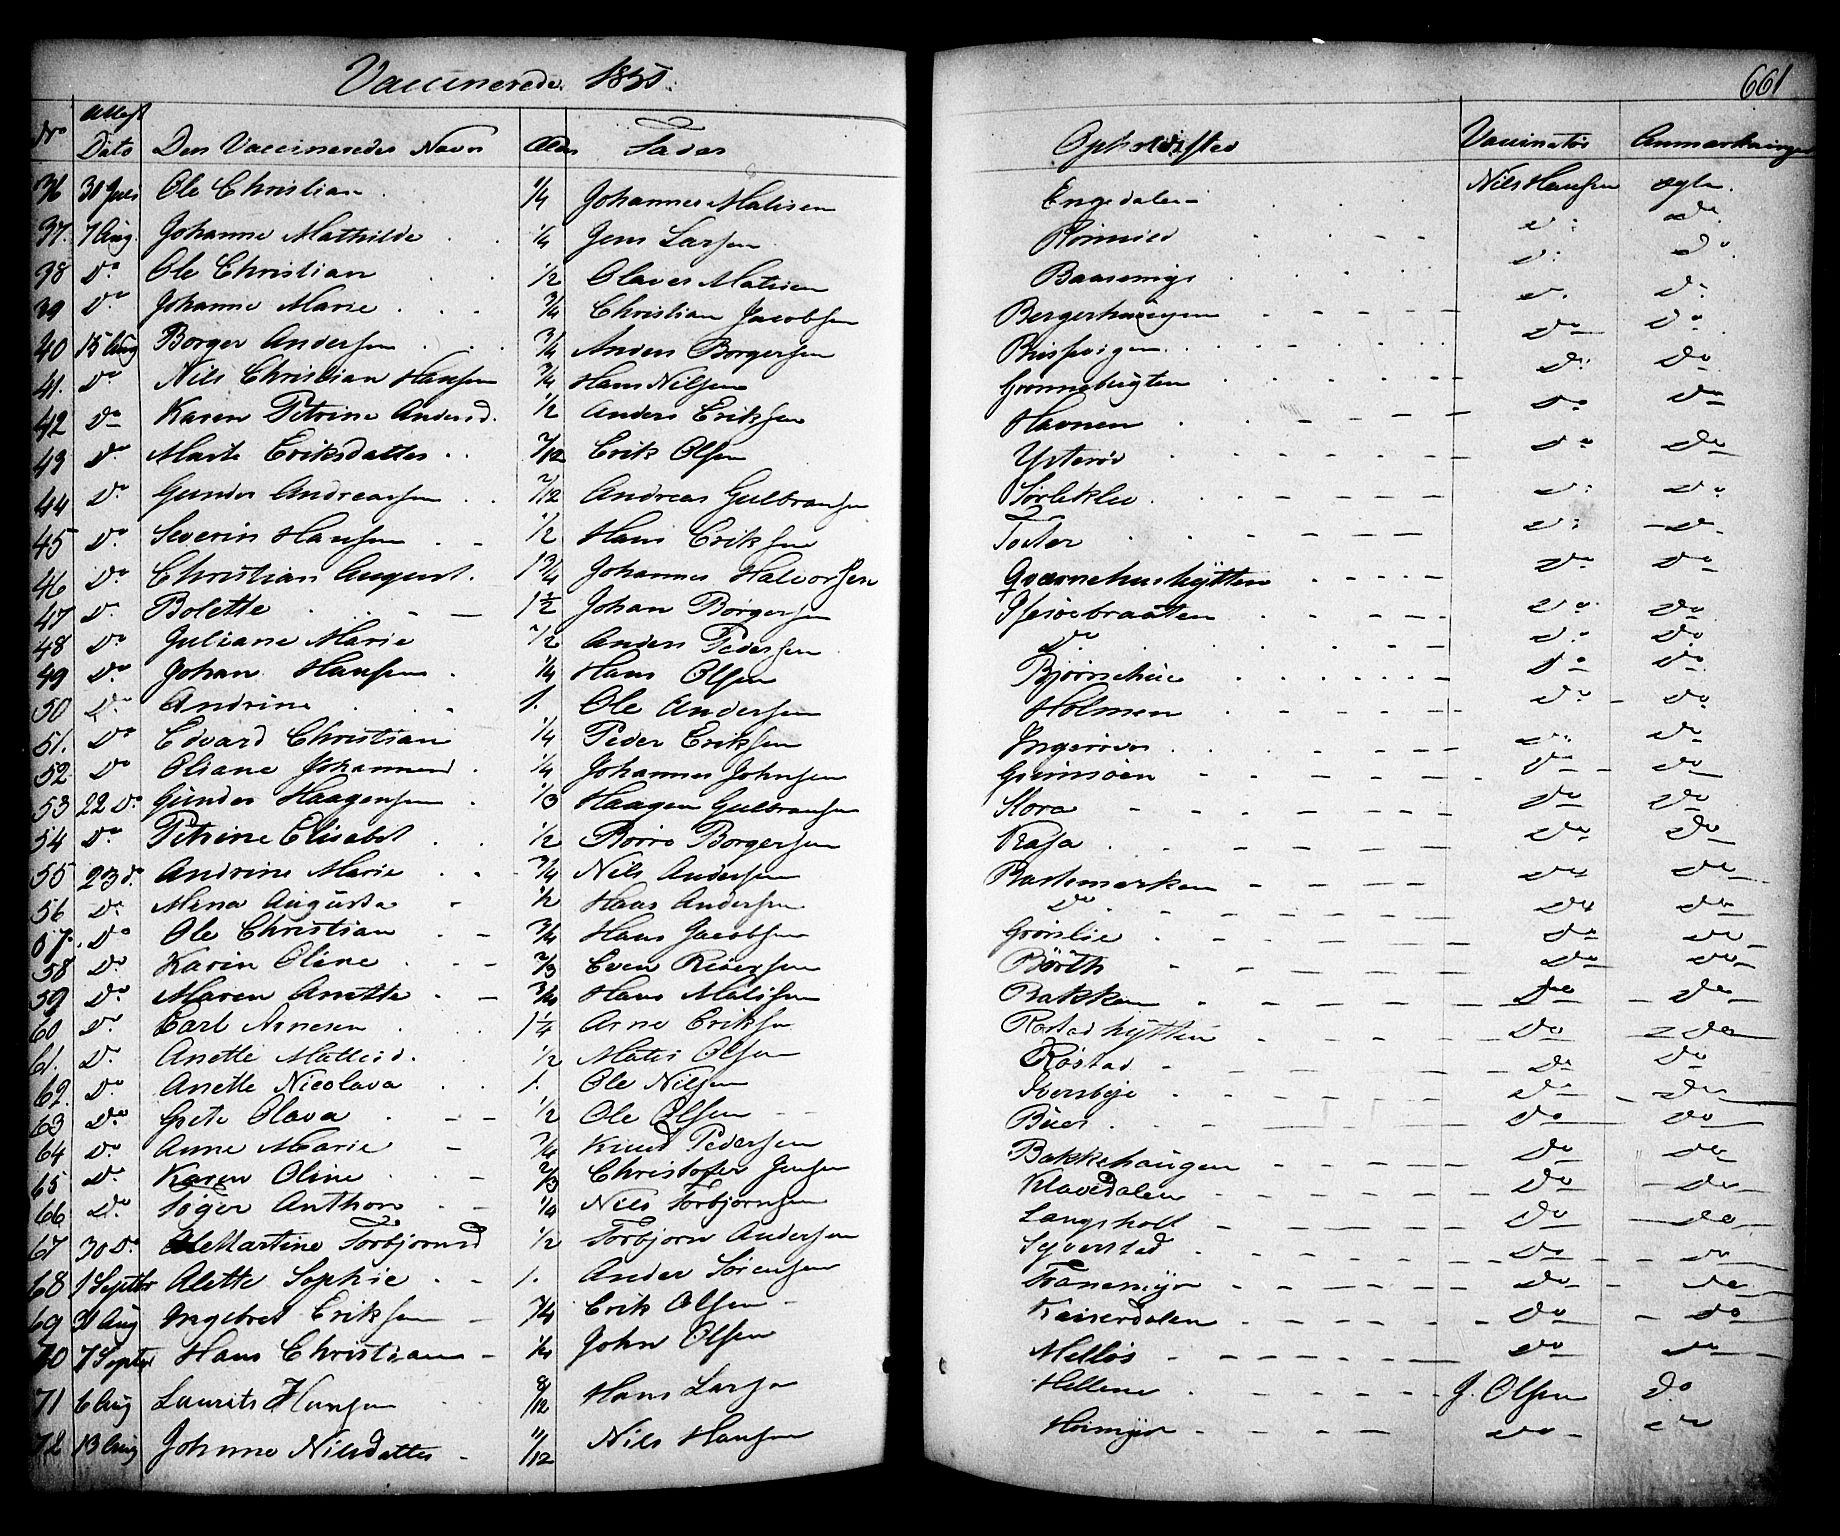 Vaccinerede 1850. 661
No Attest Dato Den Vaccineredes Navn Alder Fader Opholdssted Vaccinatør Anmærkninger
36 30 Juli Ole Christian 1/4 Johannes Matisen Engedalen Nils Hansen ægte
37. 7 Aug. Johanne Mathilde 1/4 Jens Larsen do do
38 Do Ole Christian 1/2 Olaves Matisen do Do
39 Do Johanne Marie 3/4 Christian Jacobsen Bergerhaugen do Do
40 15 Aug Borger Andersen 3/4 Anders Borgersen Do Do
41. Do Nils Christian Hansen 3/4 Hans Nilsen Grønnebugten Do Do
42 Do Karen Petrine Andersd. 1/2 Anders Eriksen Havnen Do Do
43 Do Marte Eriksdatter 7/12 Erik Olsen Ysterød Do Do
44 Do Gunder Andreassen 7/12 Andreas Gulbransen Sørlieklev Do Do
45 Do Severin Hansen 1/2 Hans Eriksen Torter Do do
46 Do Christian August 1 3/4 Johannes Halvorsen Qværnehushytten Do Do
47 Do Bolette 1 1/2 Johan Borgersen Do Do
48 Do Juliane Marie 1/2 Anders Pedersen Do Do Do
49 Do Johan Hansen 1/4 Hans Olsen Bjørnehuie Do Do
50 Do Andrine 1. Ole Andersen Holmen Do Do
51. Do Edvard Christian 1/4 Peder Eriksen Ingerøen Do Do
52 Do Oliane Johannesd. 1/4 Johannes Johnsen Grimsøen Do Do
53 22 Do Gunder Haagensen 1/3 Haagen Gulbransen Stora Do Do
54 Do Petrine Elisabet 1/2 Børre Borgersen Kasa Do Do
55 23 d. Andrine Marie 3/4 Nils Andersen Bastemarken Do Do
56 Do Mina Augusta 1/2 Hans Andersen Do Do Do
57. Do Ole Christian 3/4 Hans Jacobsen Grønlie Do Do
58 Do Karin Oline 2/3 Even Reiersen Børth Do Do
59 Do Maren Anette 3/4 Hans Matisen Bakken Do Do
60 Do Carl Arnesen 1 1/4 Arne Eriksen Røstad hytten Do Do
61. Do Anette Matisd. 1/2 Matis Olsen Røstad Do Do
62. Do Anette Nicolava 1. Ole Nilsen Iversbye Do Do
63 Do Grete Olava 1/2 Ole Olsen Buer Do Do
64 Do Anne Marie 3/4 Knud Pedersen Bakkehaugen Do Do
65 Do Karen Oline 2/3 Christofer Jensen Klavedalen Do Do
66 Do Tøger Anthon 1/4 Nils Torbjørnsen Langsholt Do Do
67 30 Do Martine Torbjørnsd 1/2 Torbjørn Andersen Syverstad Do Do
68 1 Septbr Alette Sophie 1. Ander Sørensen Tranemyr Do Do
69 31 Aug Ingebret Eriksen 3/4 Erik Olsen Keiserdalen Do Do
70 7 Septbr Hans Christian 1/4 John Olsen Melløs Do Do
71 6 Aug Laurits Hansen 8/12 Hans Larsen Hellene J. Olsen Do
72 13 Aug Johanne Nilsdatter 11/12 Nils Hansen Do Do